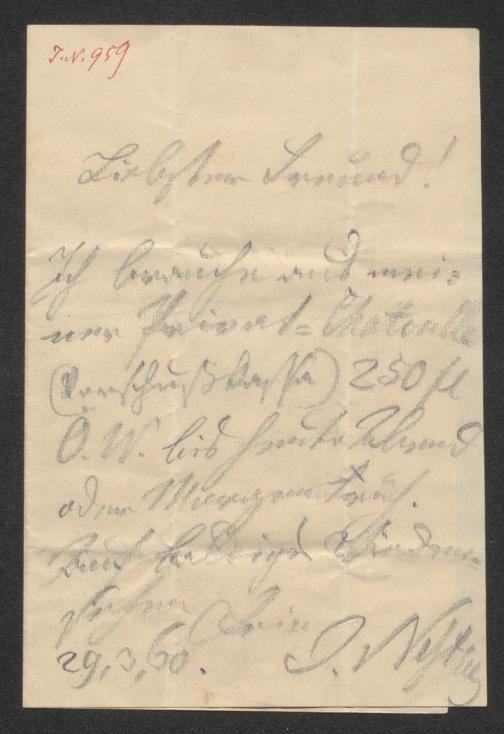 I.N. 959
Liebster Freund!
Ich brauche aus mei-
ner Privat-Chatoulle
(Vorschußkassa) 250 fl
Ö. W. bis heute Abend
oder Morgen früh.
Auf baldiges Wieder-
sehen Dein
29,3,60. J. Nestroy